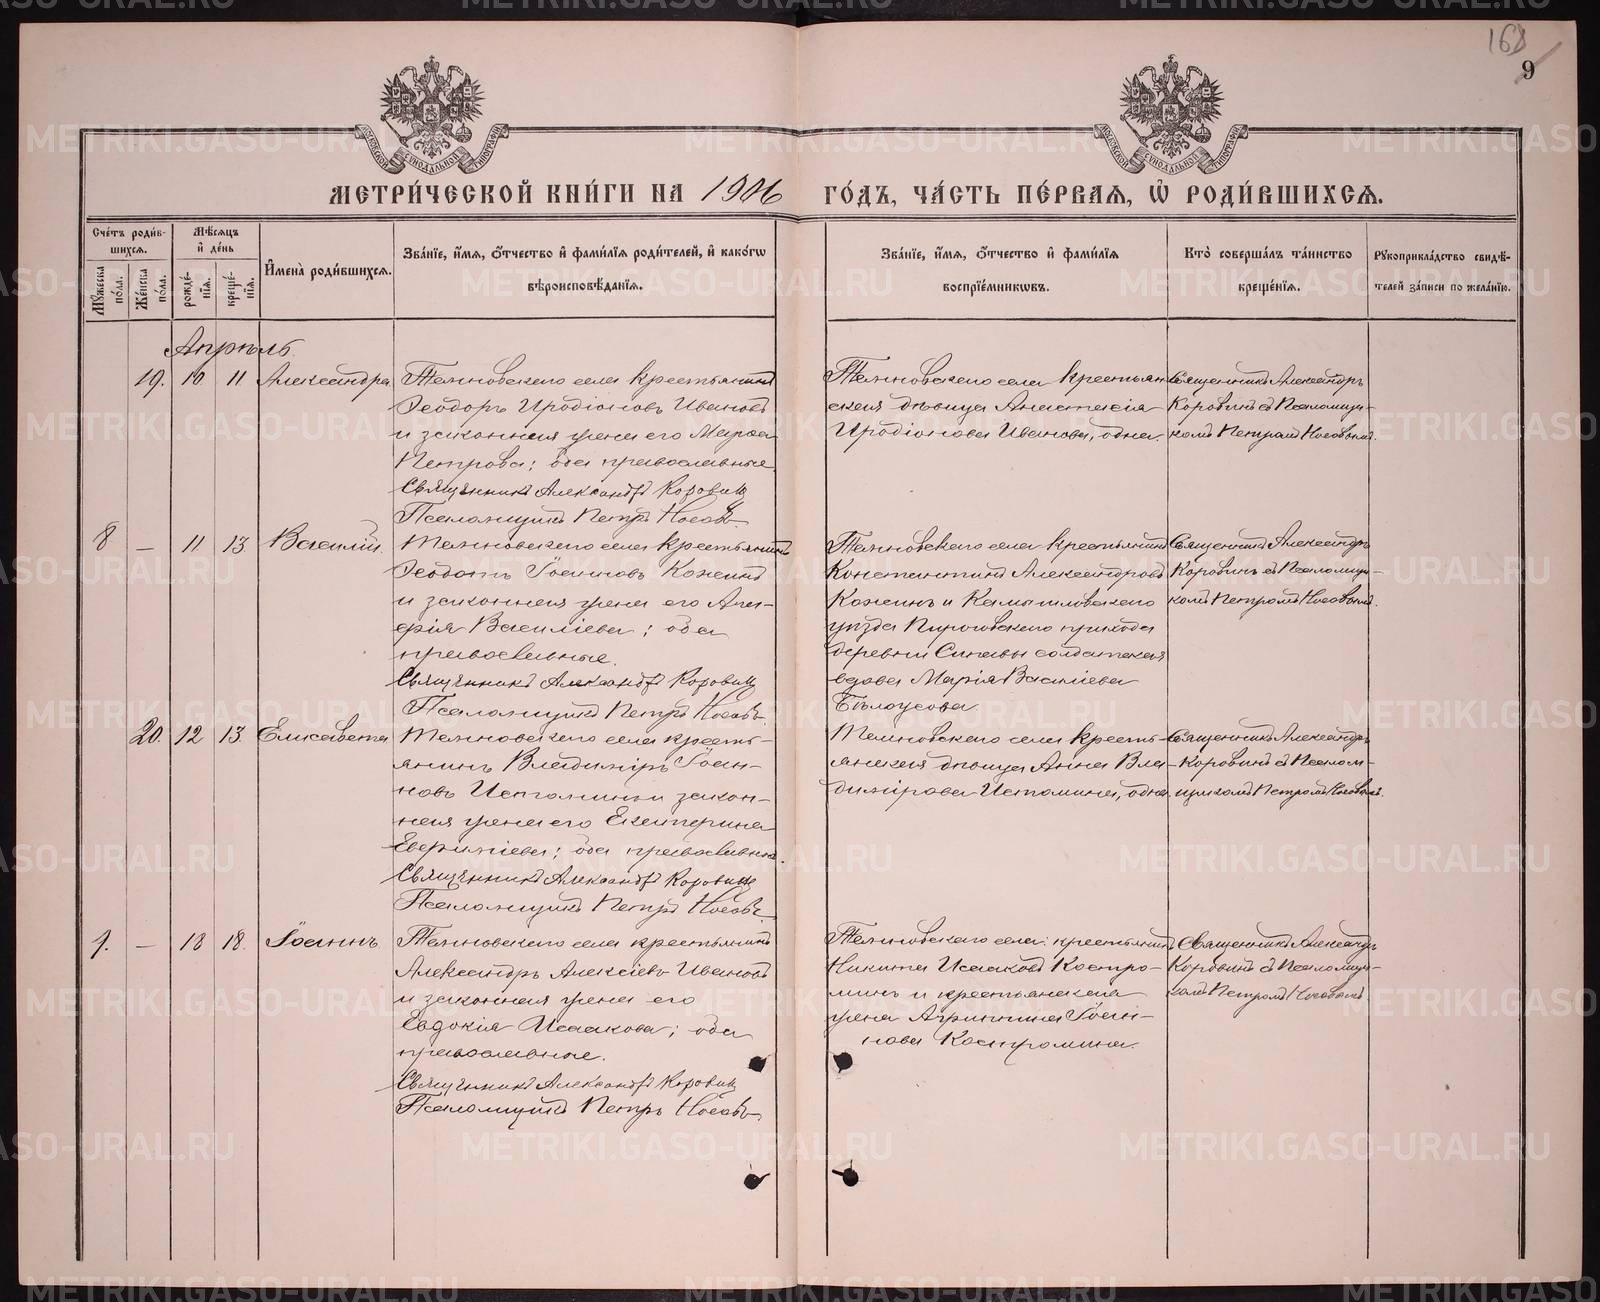 168
9
МОСКОВСКОЙ СИНОДАЛЬНОЙ ТИПОГРАФІИ
МОСКОВСКОЙ СИНОДАЛЬНОЙ ТИПОГРАФІИ
МЕТРИ́ЧЕСКОЙ КНИ́ГИ НА 1906 ГО́ДЪ, ЧА́СТЬ ПЕ́РВАЯ, Ѡ РОДИ́ВШИХСѦ.
Сче́тъ роди́вшихсѧ.
Мꙋ́жеска по́ла.
Же́нска по́ла.
Мѣ́сѧцъ и҆ де́нь
рожде́нїѧ.
креще́нїѧ.
И҆мена̀ роди́вшихсѧ.
Зва́нїе, и҆́мѧ, ѻ҆́тчество и҆ фами́лїѧ роди́телей, и҆ како́гѡ
вѣроисповѣ́данїѧ.
Зва́нїе, и҆́мѧ, ѻ҆́тчество и҆ фами́лїѧ
воспрїе́мникѡвъ.
Кто̀ соверша́лъ та́инство
креще́нїѧ.
Рꙋкоприкла́дство свидѣ́-
телей за́писи по жела́нїю.
Апрѣль.
19. 10 11 Александра
Темновскаго села крестьянинъ
Ѳеодоръ Иродіоновъ Ивановъ
и законная жена его Марѳа
Петрова; оба православные
Священникъ Александръ Коровинъ
Псаломщикъ Петръ Носовъ.
Темновскаго села крестьян-
ская дѣвица Анастасія
Иродіонова Иванова, одна.
Священникъ Александръ
Коровинъ съ Псаломщи-
комъ Петромъ Носовымъ.
8 — 11 13 Василій.
Темновскаго села крестьянинъ
Ѳеодотъ Іоанновъ Кожинъ
и законная жена его Ага-
фія Василіева; оба
православные.
Священникъ Александръ Коровинъ
Псаломщикъ Петръ Носовъ.
Темновскаго села крестьянинъ
Константинъ Александровъ
Кожинъ и Камышловскаго
уѣзда Пироговскаго прихода
деревни Синявы солдатская
вдова Марія Василіева
Бѣлоусова
Священникъ Александръ
Коровинъ съ Псаломщи-
комъ Петромъ Носовымъ.
20. 12 13. Елисавета
Темновскаго села кресть-
янинъ Владиміръ Іоан-
новъ Истоминъ и закон-
ная жена его Екатерина
Евфиміева; оба православные.
Священникъ Александръ Коровинъ
Псаломщикъ Петръ Носовъ.
Темновскаго села кресть-
янская дѣвица Анна Вла-
димірова Истомина, одна.
Священникъ Александръ
Коровинъ съ Псалом-
щикомъ Петромъ Носовымъ.
9. — 18 18. Іоаннъ
Темновскаго села крестьянинъ
Александръ Алексіевъ Ивановъ
и законная жена его
Евдокія Исаакова; оба
православные.
Священникъ Александръ Коровинъ
Псаломщикъ Петръ Носовъ.
Темновскаго села: крестьянинъ
Никита Исааковъ Костро-
минъ и крестьянская
жена Агриппина Іоан-
нова Костромина.
Священникъ Александръ
Коровинъ съ Псаломщи-
комъ Петромъ Носовымъ.
METRIKI.GASO-URAL.RU